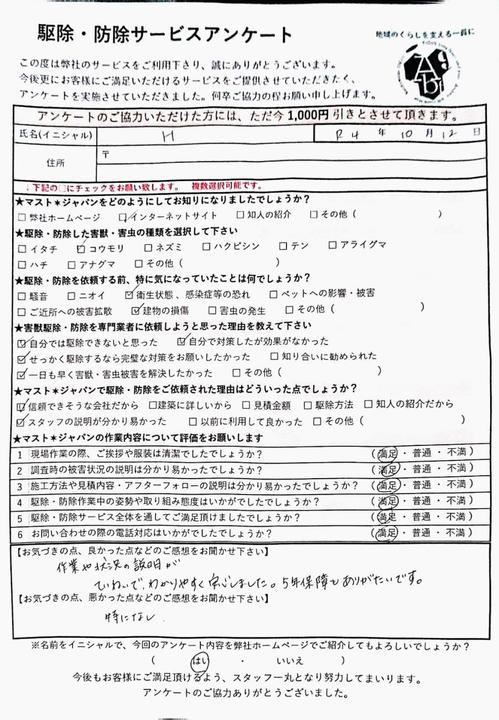 駆除・防除サービスアンケート
地域のくらしを支える一員に
この度は弊社のサービスをご利用下さり、誠にありがとうございます。
今後更にお客様にご満足いただけるサービスをご提供させていただきたく、
アンケートを実施させていただきました。何卒ご協力の程お願い申し上げます。
アンケートのご協力いただけた方には、ただ今1,000円引きとさせて頂きます。
氏名(イニシャル) H R4 年 10 月 12 日
住所 〒
↓下記の□にチェックをお願い致します。 複数選択可能です。
★マスト✶ジャパンをどのようにしてお知りになりましたでしょうか?
□弊社ホームページ ☑インターネットサイト □知人の紹介 □その他( )
★駆除・防除した害獣・害虫の種類を選択して下さい
□イタチ ☑コウモリ □ネズミ □ハクビシン □テン □アライグマ
□ハチ □アナグマ □その他( )
★駆除・防除を依頼する前、特に気になっていたことは何でしょうか?
□騒音 □ニオイ ☑衛生状態、感染症等の恐れ □ペットへの影響・被害
□ご近所への被害拡散 ☑建物の損傷 □害虫の発生 □その他( )
★害獣駆除・防除を専門業者に依頼しようと思った理由を教えて下さい
☑自分では駆除できないと思った ☑自分で対策したが効果がなかった
☑せっかく駆除するなら完璧な対策をお願いしたかった □知り合いに勧められた
☑一日も早く害獣・害虫被害を解決したかった □その他( )
★マスト✶ジャパンで駆除・防除をご依頼された理由はどういった点でしょうか?
☑信頼できそうな会社だから □建築に詳しいから □見積金額 □駆除方法 □知人の紹介だから
☑スタッフの説明が分かり易かった □以前に利用して良かった □その他( )
★マスト✶ジャパンの作業内容について評価をお願いします
1 現場作業の際、ご挨拶や服装は清潔でしたでしょうか? (満足・普通・不満)
2 調査時の被害状況の説明は分かり易かったでしょうか? (満足・普通・不満)
3 施工方法や見積内容・アフターフォローの説明は分かり易かったでしょうか? (満足・普通・不満)
4 駆除・防除作業中の姿勢や取り組み態度はいかがでしたでしょうか? (満足・普通・不満)
5 駆除・防除サービス全体を通してご満足頂けましたでしょうか? (満足・普通・不満)
6 お問い合わせの際の電話対応はいかがでしたでしょうか? (満足・普通・不満)
【お気づきの点、良かった点などのご感想をお聞かせ下さい】
作業や状況の説明が
ていねいで、わかりやすく安心しました。5年保障もありがたいです。
【お気づきの点、悪かった点などのご感想をお聞かせ下さい】
特になし
※名前をイニシャルで、今回のアンケート内容を弊社ホームページでご紹介してもよろしいでしょうか?
( はい ・ いいえ )
今後もお客様にご満足頂けるよう、スタッフ一丸となり努力してまいります。
アンケートのご協力ありがとうございました。